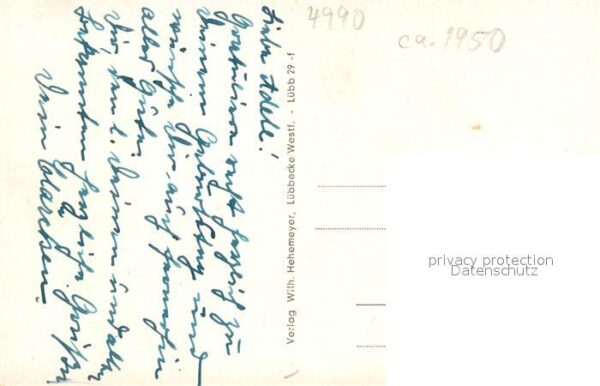 Liebe Adele!
Gratuliere recht herzlich zu
Deinem Geburtstag und
wünsche Dir auch fernerhin
alles Gute.
Dir, den l. Deinen und allen
Bekannten herzliche Grüße
Dein Clärchen.
Verlag Wilh. Hehemeyer, Lübbecke Westf. - Lübb 29 -f
4990
ca. 1950
privacy protection
Datenschutz